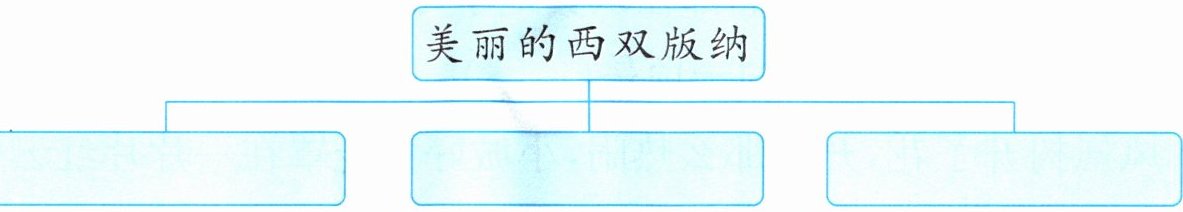 美丽的西双版纳